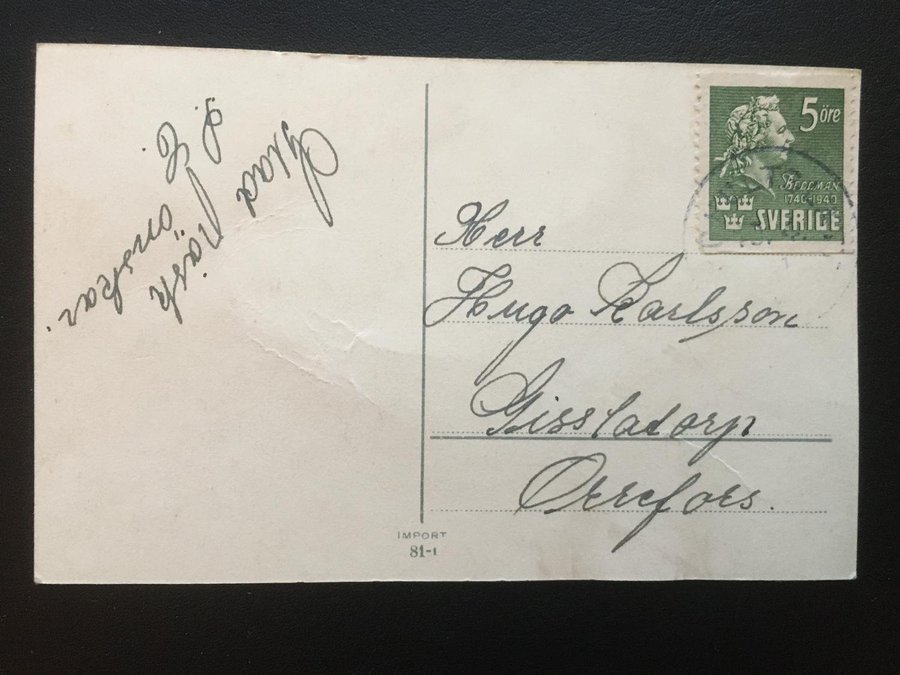 Glad Påsk
önskar.
5 öre
BELLMAN
1740-1940
SVERIGE
Herr
Hugo Karlsson
Gissladorp
Orrefors.
IMPORT
81-1